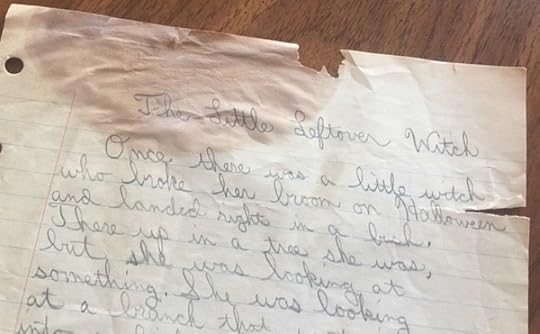 The Little Leftover Witch
Once there was a little witch
who broke her broom on Halloween
and landed right in a bush.
There up in a tree she was,
but she was looking at
something. She was looking
at a branch that
into